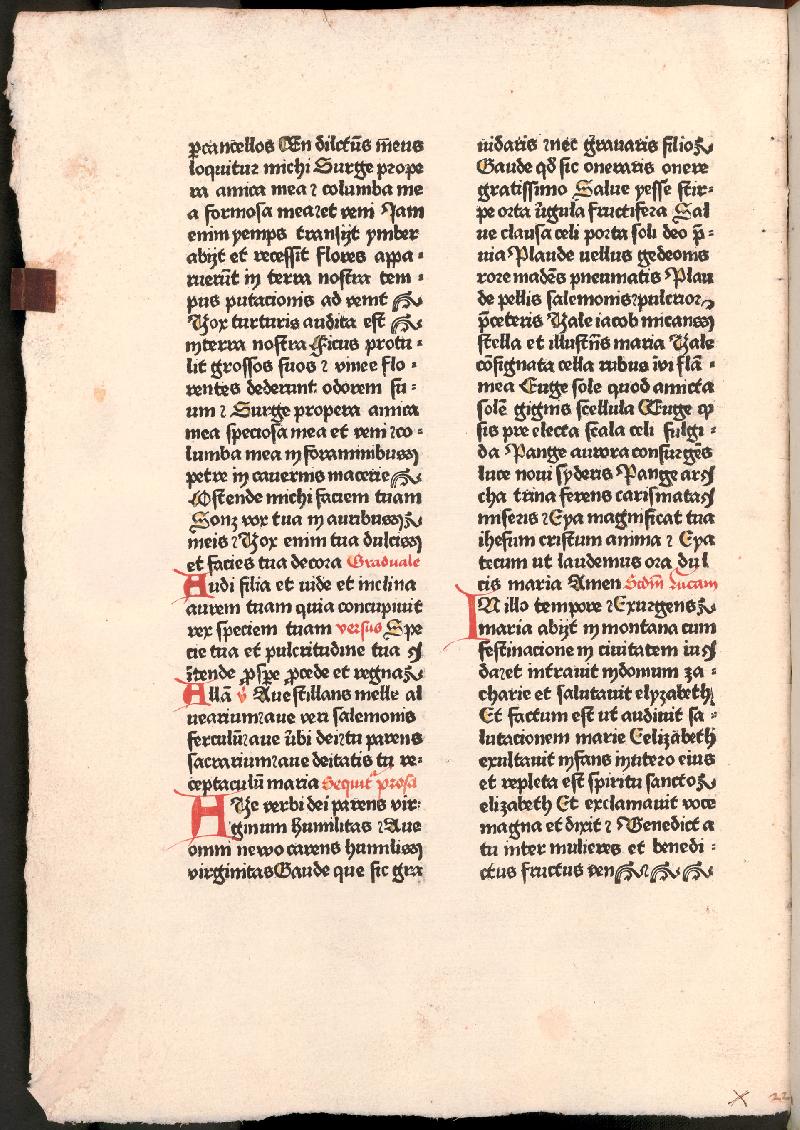 ꝑ cancellos En dilectūs meus
loquitur michi Surge prope
ra amica mea ⁊ columba me
a formosa mea ⁊ et veni Jam
enim yemps transijt ymber
abijt et recessit flores appa
ruerūt in terra nostra tem
pus putacionis ad venit
Vox turturis audita est
in terra nostra Ficus protu
lit grossos suos ⁊ vinee flo
rentes dederunt odorem su
um ⁊ Surge propera amica
mea speciosa mea et veni ⁊ co
lumba mea in foraminibus
petre in cavernis macerie
Ostende michi faciem tuam
Sonz vox tua in auribus
meis ⁊ Vox enim tua dulcis
et facies tua decora Graduale
Audi filia et uide et inclina
aurem tuam quia concupiuit
rex speciem tuam versus Spe
cie tua et pulcritudine tua
ītende ꝓspe ꝓcede et regna
Allā v̄ Aue stillans melle al
uearium ⁊ aue veri salemonis
ferculū ⁊ aue ūbi dei ⁊ tu parens
sacrarium ⁊ aue deitatis tu re
ceptaculū maria Sequit᷑ prosa
AVe verbi dei parens vir
ginum humilitas ⁊ Aue
omni nevo carens humilis
virginitas Gaude que sic gra
uidaris ⁊ nec grauaris filio
Gaude qđ sic oneraris onere
gratissimo Salue yesse stir
pe orta ūgula fructifera Sal
ue clausa celi porta soli deo p̄
uia Plaude uellus gedeonis
rore madēs pneumatis Plau
de pellis salemonis ⁊ pulcrior
p̄ceteris Vale iacob micans
stella et illustr̄is maria Vale
cōsignata cella rubus ī vi flā
mea Euge sole quod amicta
solē gignis stellula Euge q̄
sis pre electa scala celi fulgi
da Pange aurora consurgēs
luce noui syderis Pange ar
cha trina ferens carismata
miseris ⁊ Eya magnificat tua
ihesum cristum anima ⁊ Eya
tecum ut laudemus ora dul
cis maria Amen Scdm̄ lucam
IN illo tempore ⁊ Exurgens
maria abijt in montana cum
festinacione in ciuitatem iu
da ⁊ et intrauit in domum za
charie et salutauit elyzabeth
Et factum est ut audiuit sa
lutacionem marie Eelizābeth
exultauit infans in utero eius
et repleta est spiritu sancto
elizabeth Et exclamauit voce
magna et dixit ⁊ Benedicta
tu inter mulieres et benedi
ctus fructus ven